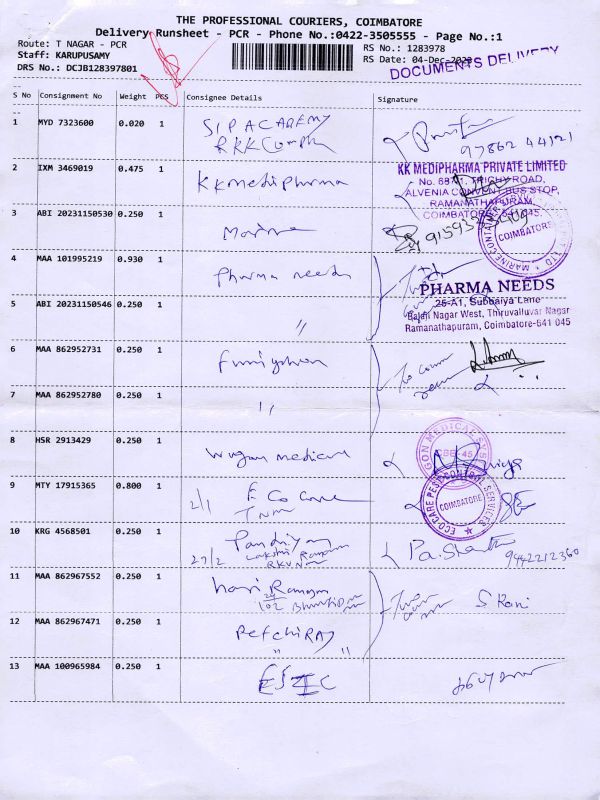 THE PROFESSIONAL COURIERS, COIMBATORE
Delivery Runsheet - PCR - Phone No.:0422-3505555 - Page No.:1
Route: T NAGAR - PCR
RS No.: 1283978
Staff: KARUPUSAMY
RS Date: 04-Dec-2020
DRS No.: DCJB128397801
DOCUMENTS DELIVERY
S No Consignment No Weight PCS Consignee Details Signature
1 MYD 7323600 0.020 1 SIP ACADEMY
97862 44121
2 IXM 3469019 0.475 1 KKmedipharma
KK MEDIPHARMA PRIVATE LIMITED
TRICHY ROAD,
ALVENIA CONVENT BUS STOP,
RAMANATHAPURAM,
COIMBATORE - 641 045.
3 ABI 20231150530 0.250 1 Marine
MARINE CONTAINER LTD
COIMBATORE
4 MAA 101995219 0.930 1 Pharma needs
PHARMA NEEDS
26-A1, Subbaiya Lane
Rajaji Nagar West, Thiruvalluvar Nagar
Ramanathapuram, Coimbatore-641 045
5 ABI 20231150546 0.250 1 "
6 MAA 862952731 0.250 1
7 MAA 862952780 0.250 1 "
8 HSR 2913429 0.250 1
GON MEDICAL SYS
CBE-45
9 MTY 17915365 0.800 1 2/1 E Co Care
ECO CARE PEST CONTROL SERVICES
COIMBATORE
10 KRG 4568501 0.250 1 Pandiyan
27/2 Lakshmi
9442212360
11 MAA 862967552 0.250 1 hari Rangan
102
S Rani
12 MAA 862967471 0.250 1 PetchiRAJ
" "
13 MAA 100965984 0.250 1 ESIC